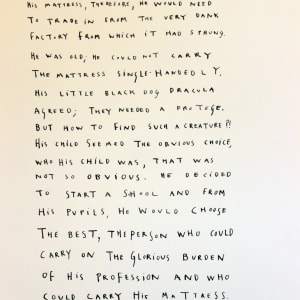 HIS MATTRESS, THEREFORE, HE WOULD NEED
TO TRADE IN FROM THE VERY DANK
FACTORY FROM WHICH IT HAD SPRUNG.
HE WAS OLD; HE COULD NOT CARRY
THE MATTRESS SINGLE-HANDEDLY.
HIS LITTLE BLACK DOG DRACULA
AGREED; THEY NEEDED A PROTEGE.
BUT HOW TO FIND SUCH A CREATURE?!
HIS CHILD SEEMED THE OBVIOUS CHOICE,
WHO HIS CHILD WAS, THAT WAS
NOT SO OBVIOUS. HE DECIDED
TO START A SCHOOL AND FROM
HIS PUPILS, HE WOULD CHOOSE
THE BEST, THE PERSON WHO COULD
CARRY ON THE GLORIOUS BURDEN
OF HIS PROFESSION AND WHO
COULD CARRY HIS MATTRESS.